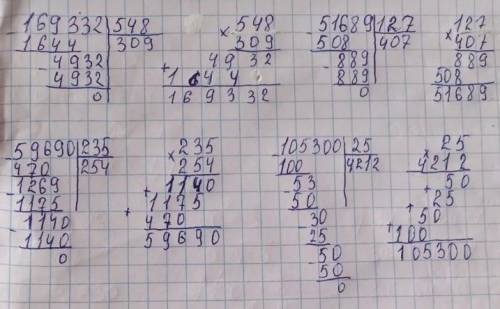 -169332 548
1644 309
-4932
4932
0
×548
309
4932
+1644
169332
-51689 127
508 407
-889
889
0
×127
407
889
508
51689
-59690 235
470 254
-1269
1175
-1140
1140
0
×235
254
+1140
1175
+470
59690
-105300 25
100 4212
-53
50
-30
25
-50
50
0
×25
4212
+50
25
+50
+100
105300